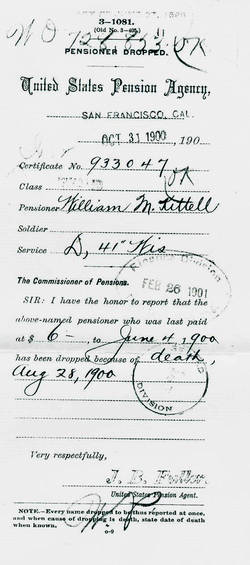 3—1081.
(Old No. 3-405.)
W O
OK
PENSIONER DROPPED.
United States Pension Agency,
SAN FRANCISCO, CAL.
OCT 31 1900, 190
Certificate No. 933047
OK
Class
Pensioner William M. Kittell
Soldier
Service D, 41" Wis
The Commissioner of Pensions.
Division
FEB 26 1901
SIR: I have the honor to report that the
above-named pensioner who was last paid
at $ 6—, to June 4, 1900
has been dropped because of death,
Aug 28, 1900
DIVISION
Very respectfully,
J. B. Fuller
United States Pension Agent.
NOTE.—Every name dropped to be thus reported at once,
and when cause of dropping is death, state date of death
when known.